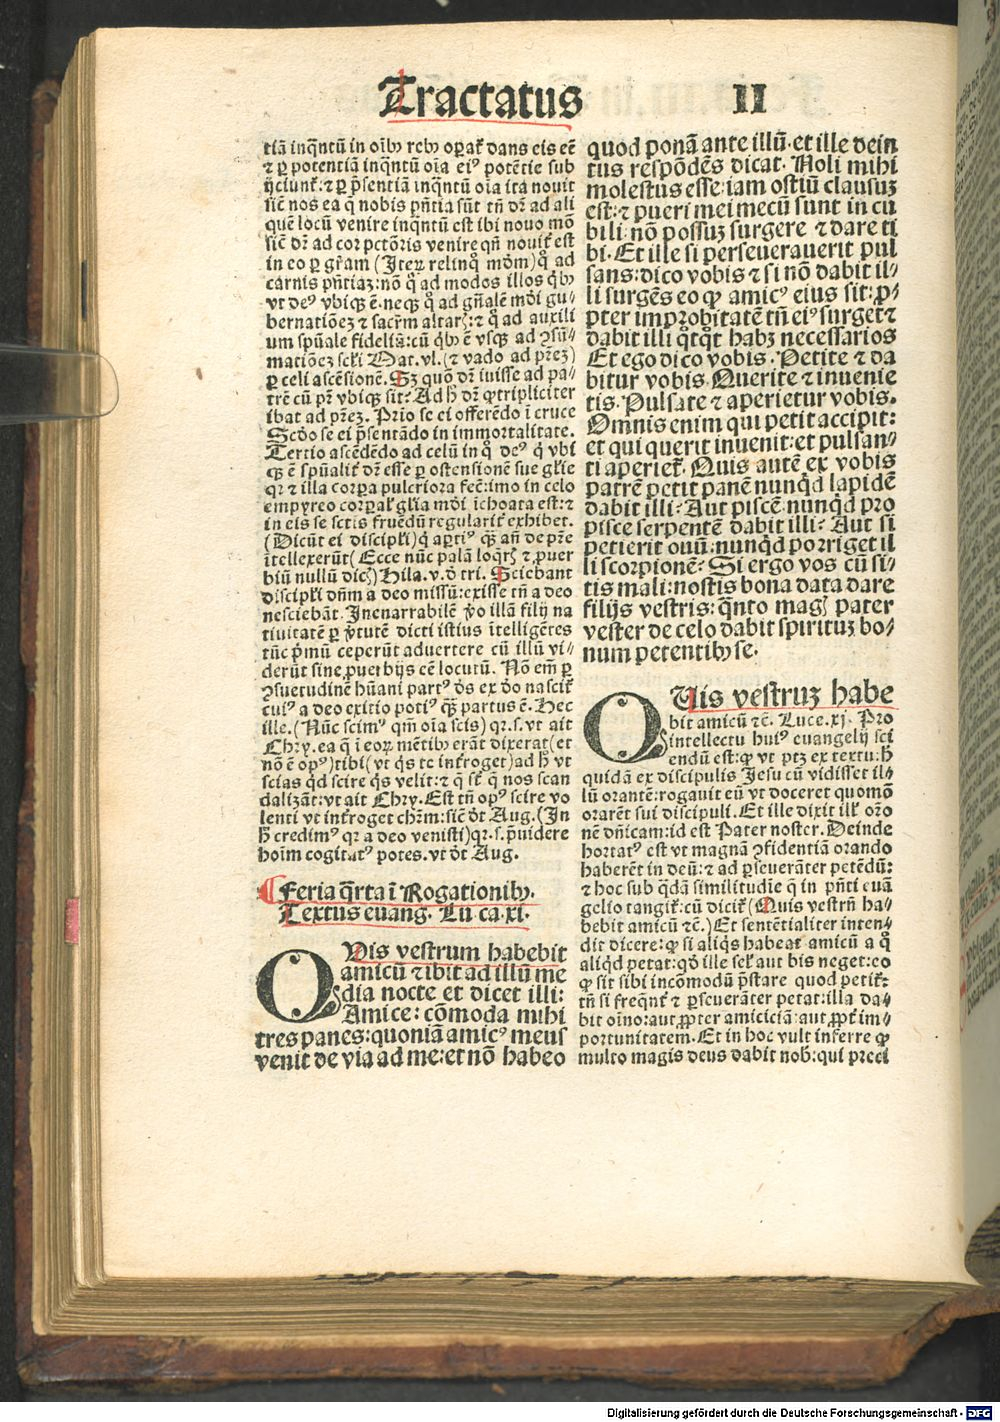 Tractatus II
tiā inq̄ntū in oīb₉ reb₉ oꝑat᷑ dans eis eē
⁊ ꝑ potentiā inq̄ntū oīa ei⁹ potētie sub
ijciunt᷑:⁊ ꝑ p̄sentiā inq̄ntū oīa ita nouit
sic̄ nos ea q̄ nobis p̄ntia sūt tn̄ dr̄ ad ali
quē locū venire inq̄ntū est ibi nouo mō
sic̄ dr̄ ad cor pctōris venire qn̄ nouit᷑ est
in eo ꝑ gr̄am (Iteꝝ relinq̊ mōm) q̊ ad
carnis p̄ntiaꝫ: nō q̊ ad modos illos qͥb₉
vt de⁹ vbiqꝫ ē. neqꝫ q̊ ad gn̄alē mōi gu-
bernatiōeꝫ ⁊ sacr̄m altarꝭ:⁊ q̊ ad auxili
um spūale fideliā: cū qͥb₉ ē vsqꝫ ad ꝯsū-
matiōeꝫ scl̄i Mat. vl. (⁊ vado ad pr̄eꝫ)
ꝑ celi ascēsionē. Sꝫ quō dr̄ iuisse ad pa-
trē cū pr̄ vbiqꝫ sit? Ad h̄ dr̄ ꝙ tripliciter
ibat ad pr̄eꝫ. Prīo se ei offerēdo ī cruce
Scd̄o se ei p̄sentādo in immortalitate.
Tertio ascēdēdo ad celū in q̊ de⁹ q̊ vbi
qꝫ ē spūalit᷑ dr̄ esse ꝑ ostensionē sue gl̄ie
qꝛ ⁊ illa corꝑa pulcriora fec̄: imo in celo
empyreo corꝑal᷑ gl̄ia mōi īchoata est:⁊
in eis se sctīs fruēdū regularit᷑ exhibet.
(Dicūt ei discipl̄i) q̄ aꝑti⁹ qꝫ an̄ de pr̄e
ītellexerūt (Ecce nūc palā loq̄rꝭ ⁊ ꝓuer
biū nullū dicꝭ) Hila. v. d̄ tri. Sciebant
discipl̄i dn̄m a deo missū: exisse tn̄ a deo
nesciebāt. Inenarrabilē v̄o illā filij na
tiuitatē ꝑ v̄tutē dicti istius ītelligētes
tūc p̄mū ceperūt aduertere cū illū vi-
derūt sine ꝓuerbijs eē locutū. Nō em̄ ꝑ
ꝯsuetudinē hūani part⁹ d̄s ex d̄o nascit᷑
cui⁹ a deo exitio poti⁹ qꝫ partus ē. Hec
ille. (Nūc scim⁹ qm̄ oīa scis) qꝛ. s. vt ait
Chry. ea q̄ ī eoꝝ mētib₉ erāt dixerat (et
nō ē op⁹) tibi (vt qͥs te int᷑roget) ad h̄ vt
scias qd̄ scire qͥs velit:⁊ q̄ st̄ q̄ nos scan
dalizāt: vt ait Chry. Est tn̄ op⁹ scire vo
lenti vt int᷑roget chr̄m: sic̄ dt̄ Aug. (In
h̄ credim⁹ qꝛ a deo venisti) qꝛ. s. p̄uidere
hoīm cogitat⁹ potes. vt dt̄ Aug.
¶ Feria q̄rta ī Rogationib₉.
Textus euang. Lu. ca. xi.
QVis vestrum habebit
amicū ⁊ ibit ad illū me
dia nocte et dicet illi:
Amice: cōmoda mihi
tres panes: quoniā amic⁹ meus
venit de via ad me: et nō habeo
quod ponā ante illū. et ille dein
tus respōdēs dicat. Noli mihi
molestus esse: iam ostiū clausuꝫ
est:⁊ pueri mei mecū sunt in cu
bili: nō possuꝫ surgere ⁊ dare ti
bi. Et ille si perseuerauerit pul
sans: dico vobis ⁊ si nō dabit il-
li surgēs eo ꝙ amic⁹ eius sit: ꝓ-
pter improbitatē tn̄ ei⁹ surget ⁊
dabit illi qͦtqͦt habꝫ necessarios
Et ego dico vobis. Petite ⁊ da
bitur vobis. Querite ⁊ inuenie
tis. Pulsate ⁊ aperietur vobis.
Omnis enim qui petit accipit:
et qui querit inuenit: et pulsan-
ti aperiet᷑. Quis autē ex vobis
patrē petit panē nunqd̄ lapidē
dabit illi? Aut piscē: nunqd̄ pro
pisce serpentē dabit illi? Aut si
petierit ouū: nunqd̄ porriget il
li scorpionē? Si ergo vos cū si-
tis mali: nostis bona data dare
filijs vestris: q̄nto magꝭ pater
vester de celo dabit spirituꝫ bo-
num petentib₉ se.
QUis vestruꝫ habe
bit amicū ⁊c̄. Luce. xj. Pro
intellectu hui⁹ euangelij sci
endū est: ꝙ vt ptꝫ ex textu: h̄
quidā ex discipulis Jesu cū vidisset il-
lū orantē: rogauit eū vt doceret quomō
orarēt sui discipuli. Et ille dixit ill᷑ orō
nē dn̄icam: id est Pater noster. Deinde
hortat⁹ est vt magnā ꝯfidentiā orando
haberēt in deū:⁊ ad ꝑseuerāter petēdū:
⁊ hoc sub qͣdā similitudīe q̄ in p̄nti euā
gelio tangit᷑: cū dicit᷑ (Quis vestrū ha-
bebit amicū ⁊c̄.) Et sentētialiter inten-
dit dicere: ꝙ si aliqͥs habeat amicū a q̊
aliqd̄ petat: qd̄ ille sel᷑ aut bis neget: eo
ꝙ sit sibi incōmodū p̄stare quod petit᷑:
tn̄ si freqn̄t᷑ ⁊ ꝑseuerāter petat: illa da-
bit oīno: aut ꝓpter amiciciā: aut ꝓpt᷑ im-
portunitatem. Et in hoc vult inferre ꝙ
multo magis deus dabit nob̄: qui preci
Digitalisierung gefördert durch die Deutsche Forschungsgemeinschaft - DFG